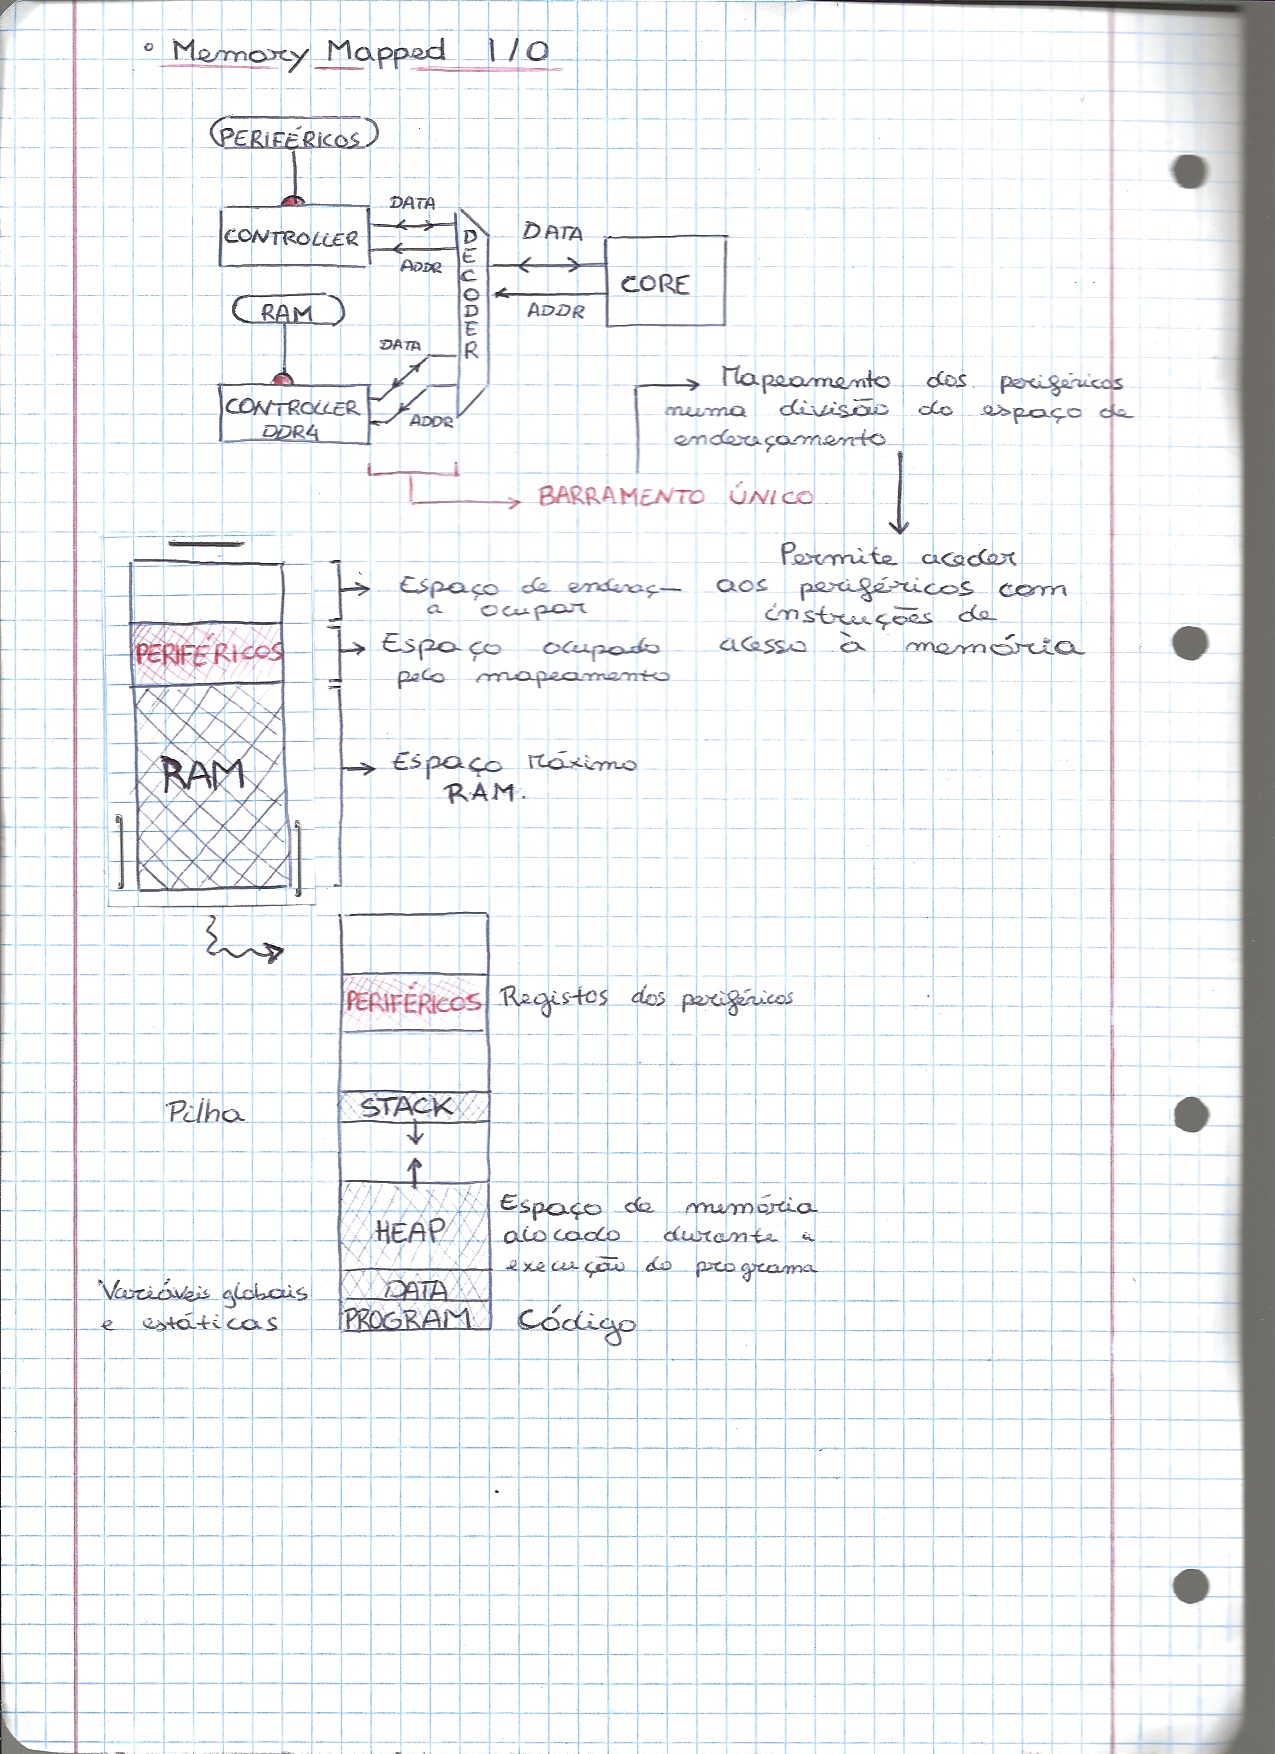 • Memory Mapped I/O
PERIFÉRICOS
DATA
CONTROLLER
ADDR
DECODER
DATA
ADDR
CORE
RAM
DATA
CONTROLLER
DDR4
ADDR
Mapeamento dos periféricos
numa divisão do espaço de
endereçamento
BARRAMENTO ÚNICO
Permite aceder
aos periféricos com
instruções de
acesso à memória
Espaço de endereç—
a ocupar
PERIFÉRICOS
Espaço ocupado
pelo mapeamento
RAM
Espaço Máximo
RAM.
PERIFÉRICOS
Registos dos periféricos
Pilha
STACK
HEAP
Espaço de memória
alocado durante a
execução do programa
Variáveis globais
e estáticas
DATA
PROGRAM
Código